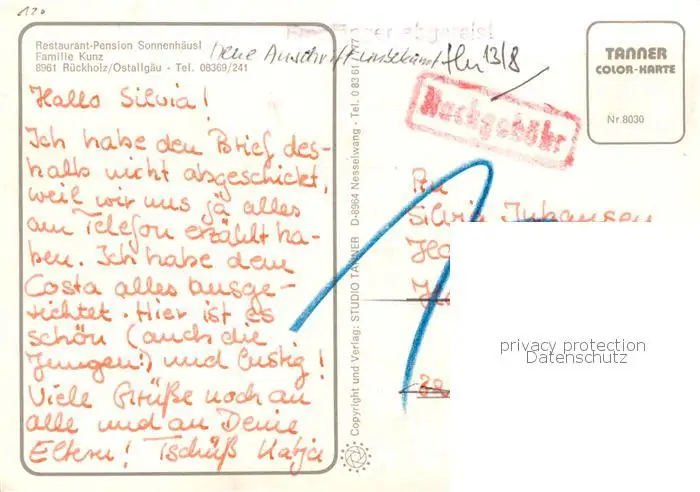 120
Restaurant-Pension Sonnenhäusl
Familie Kunz
8961 Rückholz/Ostallgäu - Tel. 08369/241
Hallo Silvia!
Ich habe den Brief des-
halb nicht abgeschickt,
weil wir uns ja alles
am Telefon erzählt ha-
ben. Ich habe dem
Costa alles ausge-
richtet. Hier ist es
schön (auch die
Jungen!) und lustig!
Viele Grüße noch an
alle und an Deine
Eltern! Tschüß Katja
Copyright und Verlag: STUDIO TANNER D-8964 Nesselwang - Tel. 0 83 61
Empfänger abgereist
Neue Anschrift unbekannt 13/8
Nachgebühr
TANNER
COLOR-KARTE
Nr. 8030
An
Silvia
privacy protection
Datenschutz